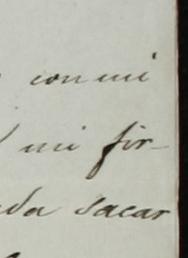 con mi
mi fir-
da sacar